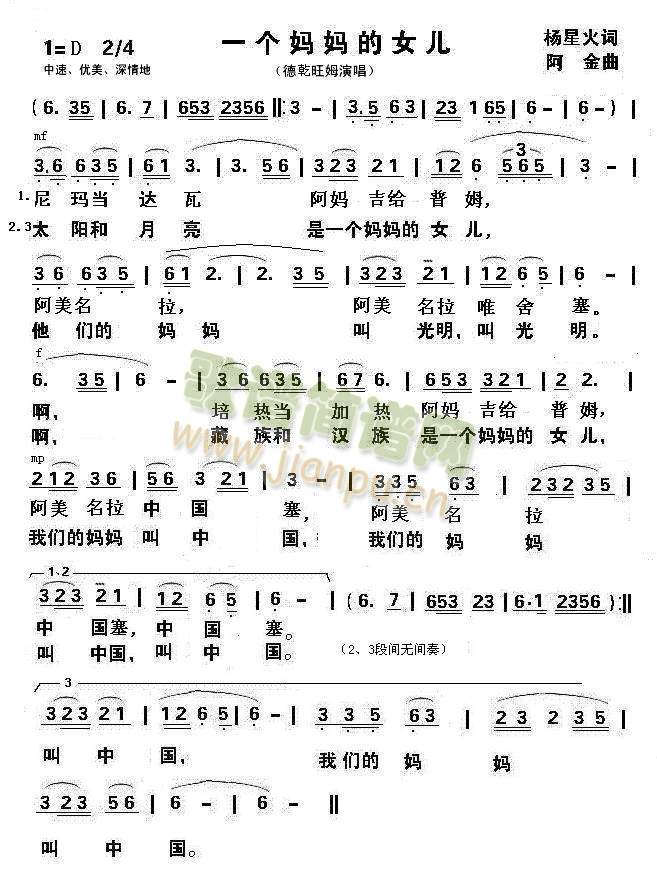 一个妈妈的女儿
1=D 2/4
杨星火词
中速、优美、深情地
（德乾旺姆演唱）
阿 金曲
( 6. 35 | 6. 7 | 653 2356 ‖: 3 - | 3.5 63 | 23 165 | 6 - | 6 - )
mf
3
3.6 635 | 61 3. | 3. 56 | 323 21 | 12 6 | 565 | 3 - |
1. 尼 玛当 达 瓦 阿妈 吉给 普 姆,
2.3 太 阳和 月 亮 是一个妈妈的 女 儿,
36 635 | 61 2. | 2. 35 | 323 21 | 12 65 | 6 - |
阿美名 拉, 阿美 名拉 唯 舍 塞。
他 们的 妈 妈 叫 光明,叫 光 明。
f
6. 35 | 6 - | 36 635 | 67 6. | 653 321 | 22 2. |
啊, 培 热当 加 热 阿妈 吉给 普 姆,
啊, 藏 族和 汉 族 是一个妈妈的 女 儿,
mp
212 36 | 56 3 | 3 - | 335 63 | 232 35 |
阿美 名拉 中 国 塞, 阿美 名 拉
我们的妈妈 叫 中 国, 我们的 妈 妈
1、2
323 21 | 12 65 | 6 - | ( 6. 7 | 653 23 | 6·1 2356 ) :‖
中 国塞,中 国 塞。
叫 中国,叫 中 国。
（2、3段间无间奏）
3
323 21 | 12 65 | 6 - | 3 3 5 63 | 23 2 35 |
叫 中 国, 我们的 妈 妈
323 56 | 6 - | 6 - ‖
叫 中 国。
歌谱简谱网
www.jianpu.cn